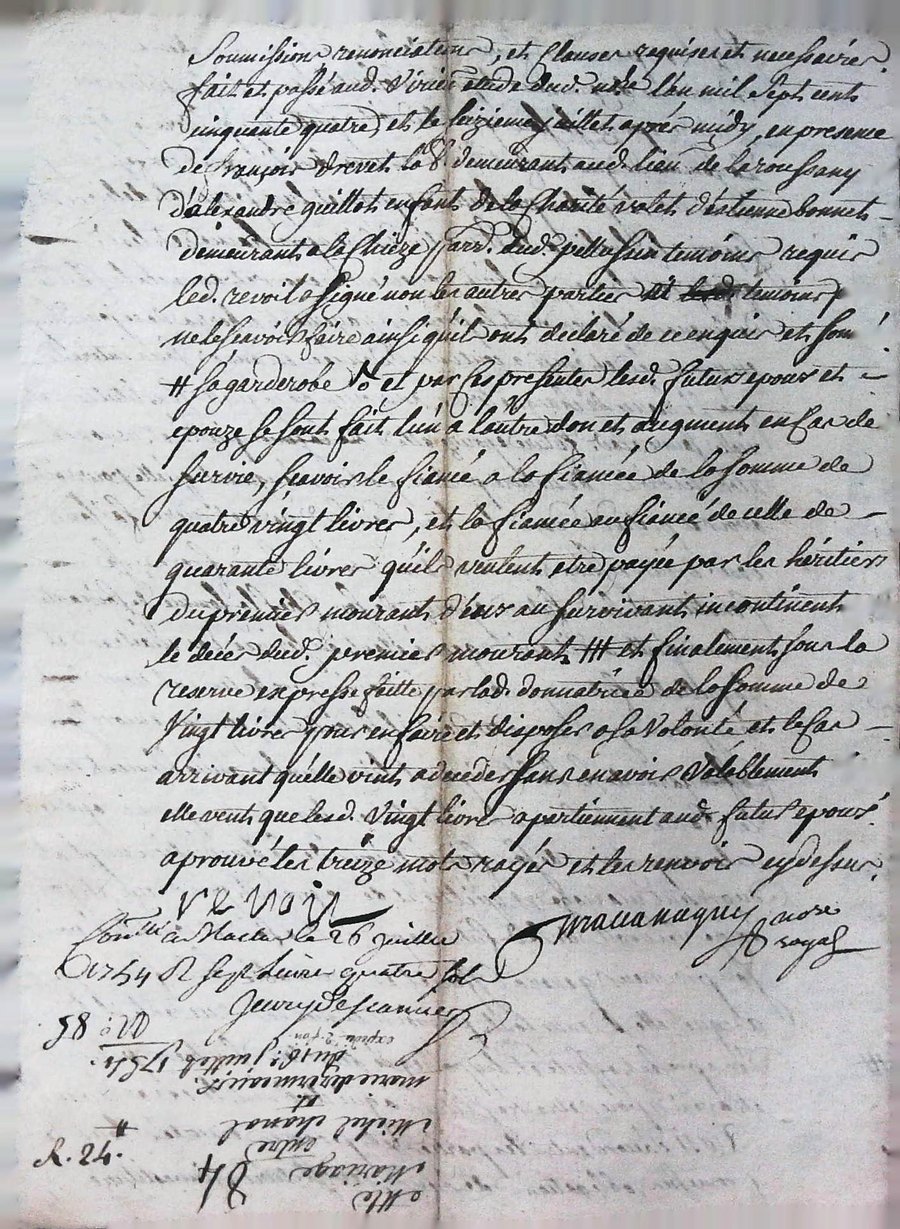 Soumissions renonciations, et Clauses requises et necessaires.
fait et passé aud. Virieu etude dud. nore l'an mil Sept cent
cinquante quatre et le seizieme juillet après midy, en presence
de françois drevet demeurant aud. lieu de la
d'alexandre guillot enfant de la Charité valet d'estienne bonnet
demeurant a la Chieze parr. dud. pellussin temoins requis
led. revoit a signé non les autres parties et temoins p.
ne le scavoir faire ainsi qu'il ont declaré de ce enquis et som.
# sa garderobe et par ses presentes lesd. futurs epoux et
epouze se sont fait l'un a l'autre don et augment en Cas de
survie, scavoir le fiancé a la fiancée de la somme de
quatre vingt livres, et la fiancée au fiancé de celle de
quarante livres qu'ils veulent etre payée par les héritiers
du premier mourant d'eux au survivant incontinent
le décès dud. premier mourant ### et finalement sous la
reserve expresse faitte par lad. donnatrice de la somme de
Vingt livres pour en faire et disposer a sa Volonté et le Cas
arrivant qu'elle vint a deceder sans en avoir Valablement
elle veut que lesd. Vingt livres apartiennent aud. futur epoux.
aprouvé les treize mots rayés et les renvois cy dessus.
revoit
nore
royal
Conllé à Maclas le 26 juillet
1754 R sept Livres quatre sols
Acte 84
Mariage
entre
Michel chanal #
et
marie
du 16e juillet 1754.
expédié 2. fois
No. 58
R. 24.